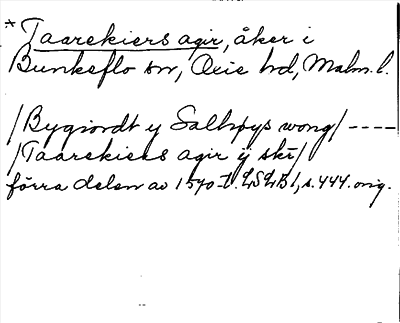 * Taarekiers agir, åker i
Bunkeflo sn, Oxie hd, Malm. l.
/Bygiordt y Salhøys wong/ ----
/Taarekiers agir ÿ skr/
förra delen av 1570-t. LSLB1, s. 444. orig.